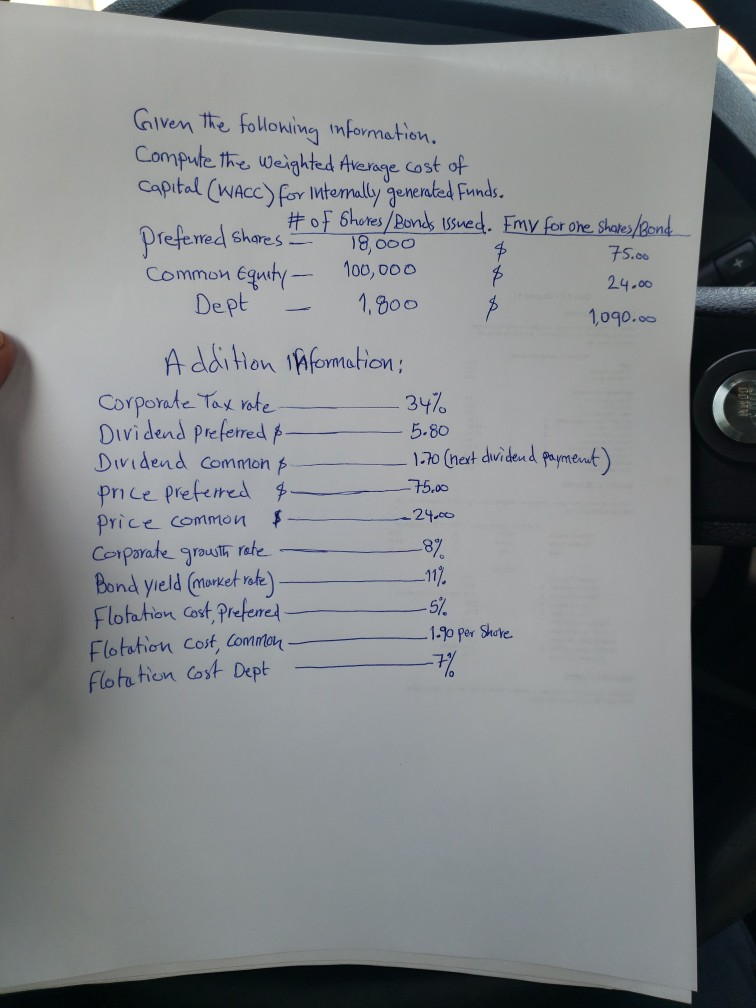 Given the following information.
Compute the Weighted Average cost of
Capital (WACC) for Internally generated Funds.
# of Shares/Bonds Issued. Fmv for one shares/Bond
preferred shares — 18,000 $ 75.00
Common Equity — 100,000 $ 24.00
Dept — 1,800 $ 1,090.00
Addition information:
Corporate Tax rate — 34%
Dividend Preferred $ — 5.80
Dividend common $ — 1.70 (next dividend payment)
price preferred $ — 75.00
price common $ — 24.00
Corporate growth rate — 8%
Bond yield (market rate) — 11%
Flotation cost, Preferred — 5%
Flotation cost, Common — 1.90 per Share
flotation cost Dept — 7%